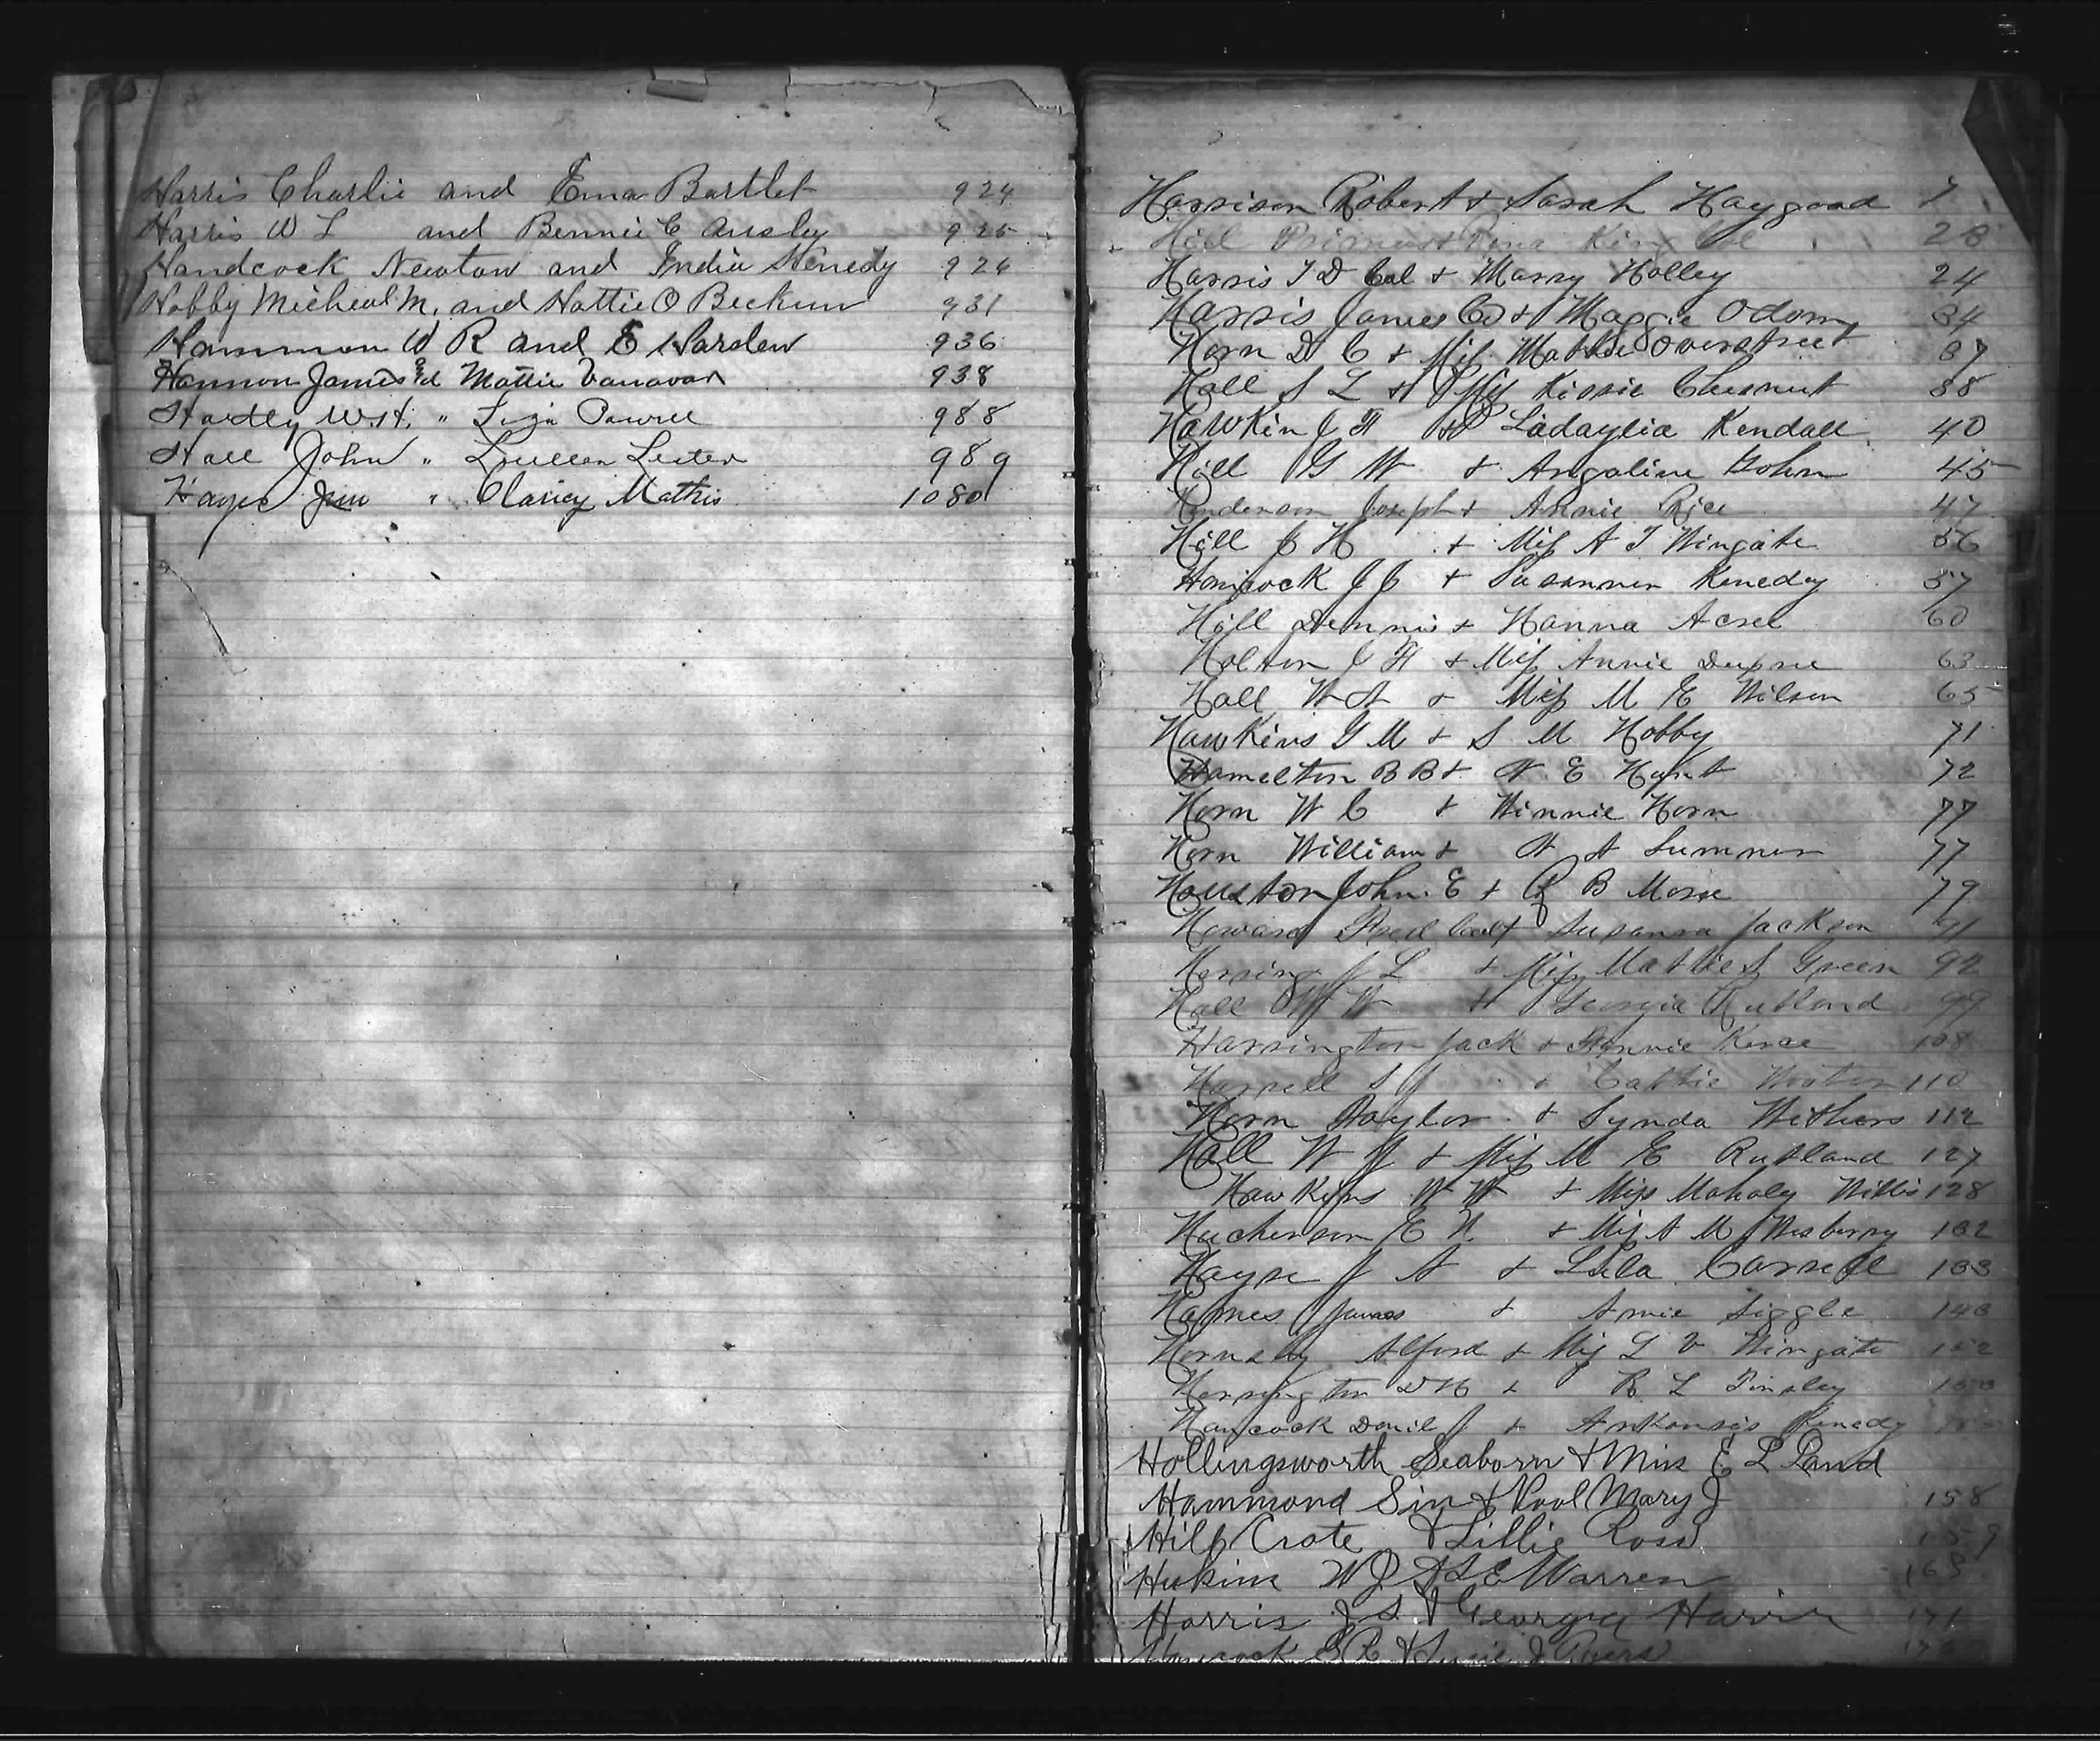 Harris Charlie and Ema Bartlet 924
Harris W L and Bennie C Ansley 925
Handcock Newton and India Kenedy 926
Hobby Micheal M. and Hattie O Beckum 931
Hammon W R and E Harden 936
Hannon James and Mattie Vanavar 938
Hartley W.H. " Powell 988
Hall John " Louellen Lester 989
Hayes Jim " Clancy Mathis 1080
Harrison Robert & Sarah Haygood 7
Hill Primus & King Col 23
Harris T D Col & Marry Holley 24
Harris James Co & Maggie Odom 34
Horn D C & Miss Mattie Overstreet 37
Hall S L & Miss Kissie Chesnut 38
Hawkin J H & Ladaylia Kendall 40
Hill G W & Angaline Bohn 45
Henderson Joseph & Annie Rice 47
Hill J H & Miss A T Wingate 56
Hancock J J & Susannen Kenedy 57
Hill Dennis & Hanna Acree 60
Holton J H & Miss Annie Dupree 63
Hall W A & Miss M E Wilson 65
Hawkins G M & S M Hobby 71
Hamelton B B & N. E Hunt 72
Horn W C & Winnie Horn 77
Horn William & N A Sumner 77
Houston John. E & R B More 79
Howard Fred Col & Susanna Jackson 91
Herring J L & Miss Mattie S Green 92
Hall W W & Georgia Rutland 99
Harrington Jack & Annie Kerce 108
Harrell S J & Cattie Wooten 110
Horn Taylor & Synda Withers 112
Hall W J & Miss M E Rutland 127
Hawkins W W & Miss Mahaly Willis 128
Huchenson E N & Miss A M Wesberry 132
Hayse J A & Lula Carrell 133
Haynes James & Amie Siggle 143
Hornsby Alford & Miss L V Wingate 152
Herrington D H & R L Tinsley 153
Hancock Daniel J & Arkansis Kenedy
Hollingsworth Seaborn & Miss E L Land
Hammond Sin & Pool Mary J 158
Hill Crate & Lillie Ross 159
Huskins W J & L E Warren 163
Harris J S & Georgia Harris 171
Hancock E R & J Rivers